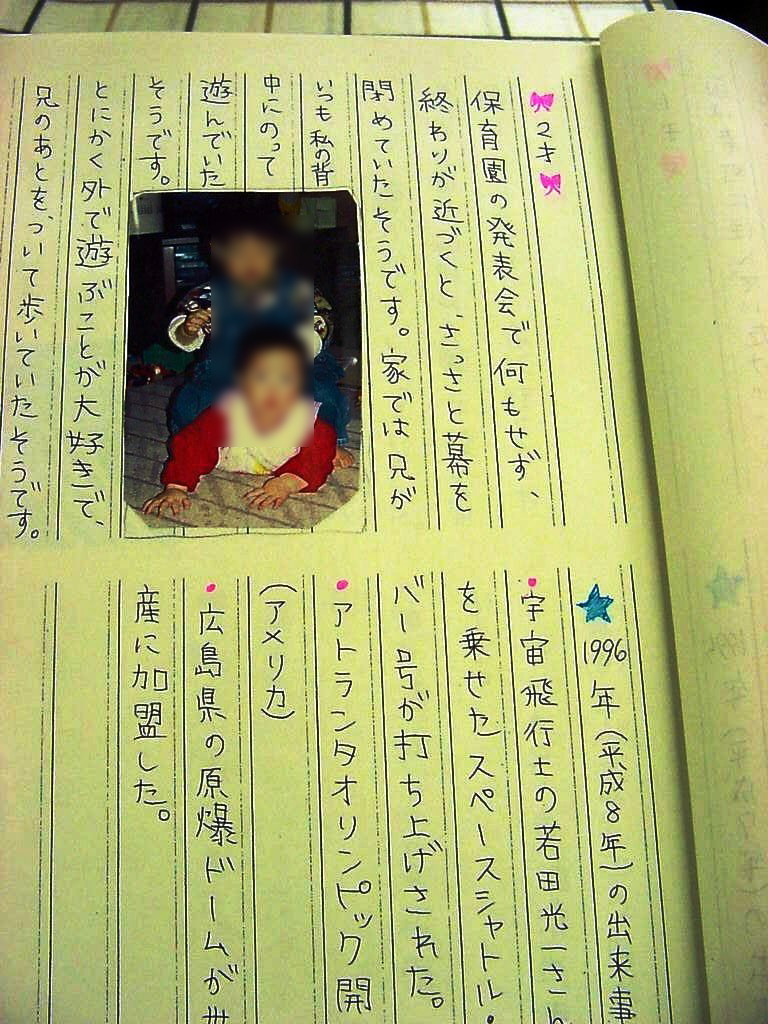 2才
保育園の発表会で何もせず、
終わりが近づくと、さっさと幕を
閉めていたそうです。家では兄が
いつも私の背
中にのって
遊んでいた
そうです。
とにかく外で遊ぶことが大好きで、
兄のあとを、ついて歩いていたそうです。
1996年(平成8年)の出来事
・宇宙飛行士の若田光一さん
を乗せたスペースシャトル・
バー号が打ち上げされた。
・アトランタオリンピック開
(アメリカ)
・広島県の原爆ドームが世
産に加盟した。